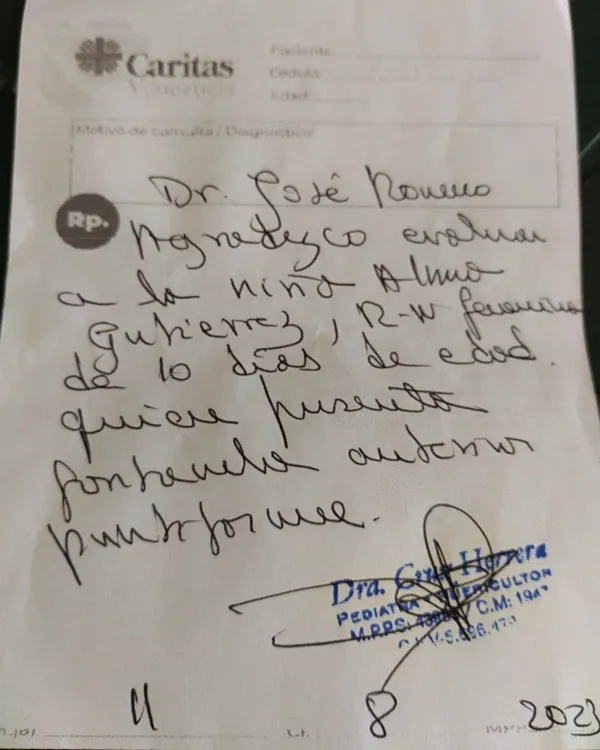 Caritas
Venezuela
Paciente:
Cédula:
Edad:
Motivo de consulta / Diagnóstico:
Rp.
Dr. José Romero
Agradezco evaluar
a la niña Alma
Gutierrez, R-N femenino
de 10 días de edad.
quien presenta
fontanela anterior
puntiforme.
Dra. Herrera
PEDIATRA PUERICULTOR
M.P.P.S: C.M:
11 8 2023